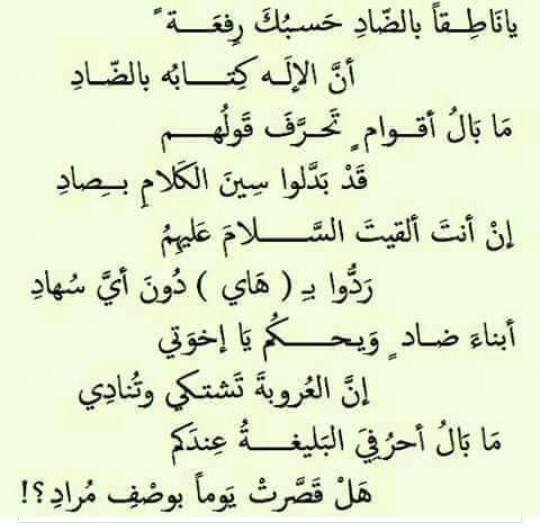 يانَاطِقاً بالضَّادِ حَسبُكَ رِفعَة ً
أنَّ الإلَه كِتَابُه بالضَّادِ
مَا بَالُ أقوام ٍ تَحرَّفَ قَولُهم
قَدْ بَدَّلوا سِينَ الكَلامِ بِصادِ
إنْ أنتَ ألقيتَ السَّلامَ عَليهِمُ
رَدُّوا بِ ( هَاي ) دُونَ أيَّ سُهادِ
أبناءَ ضاد ٍ وَيحكُم يَا إخوَتي
إنَّ العُروبةَ تَشتكي وتُنادِي
مَا بَالُ أحرُفِيَ البَليغةُ عِندَكم
هَلْ قَصَّرتْ يَوماً بوصْفِ مُرادِ؟!